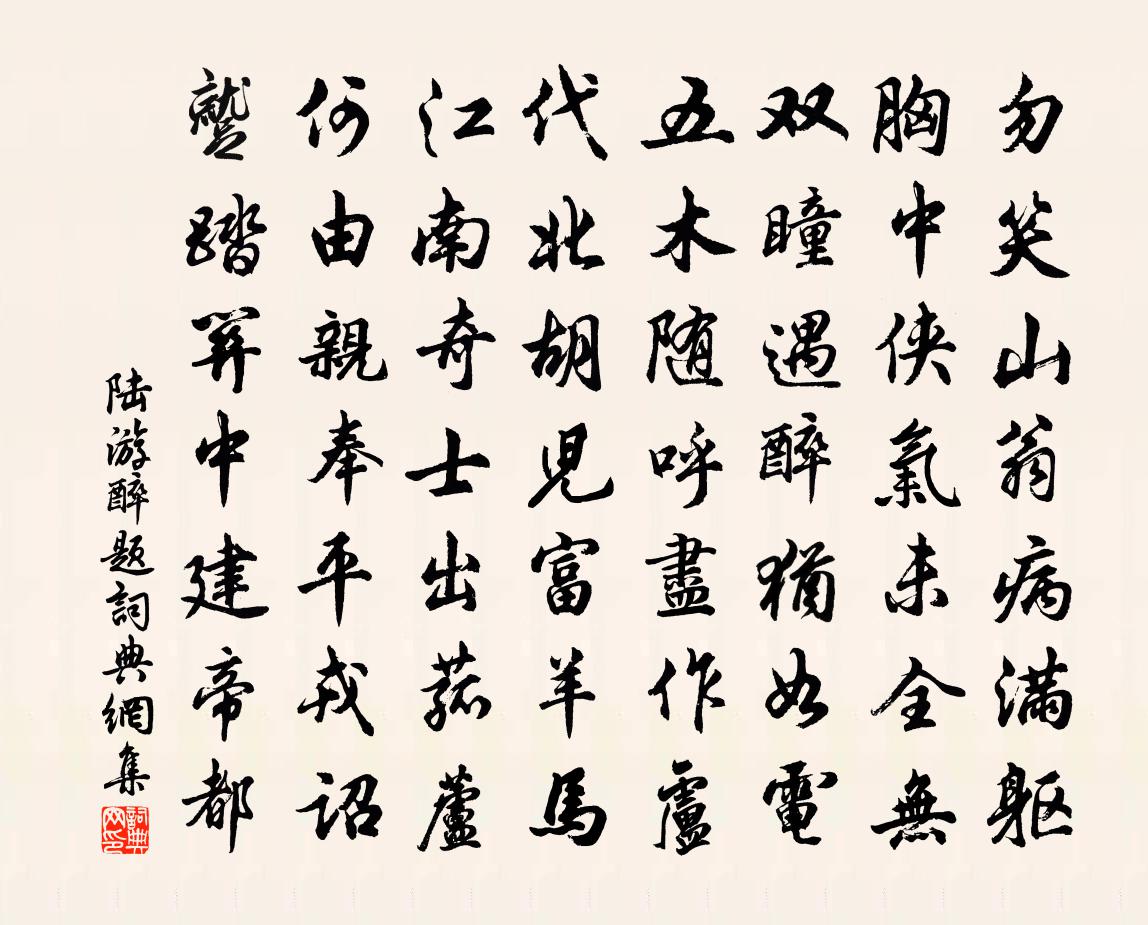 勿笑山翁病满躯
胸中侠氣未全無
双瞳遇醉猶如電
五木随呼盡作盧
代北胡児富羊馬
江南奇士出菰蘆
何由親奉平戎詔
蹔踏關中建帝都
陆游醉题詞典網集
詞典网印